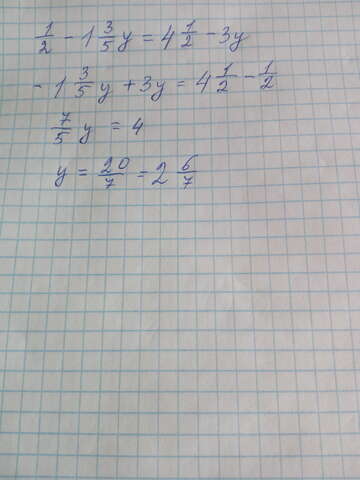 1/2 - 1 3/5 y = 4 1/2 - 3y
- 1 3/5 y + 3y = 4 1/2 - 1/2
7/5 y = 4
y = 20/7 = 2 6/7